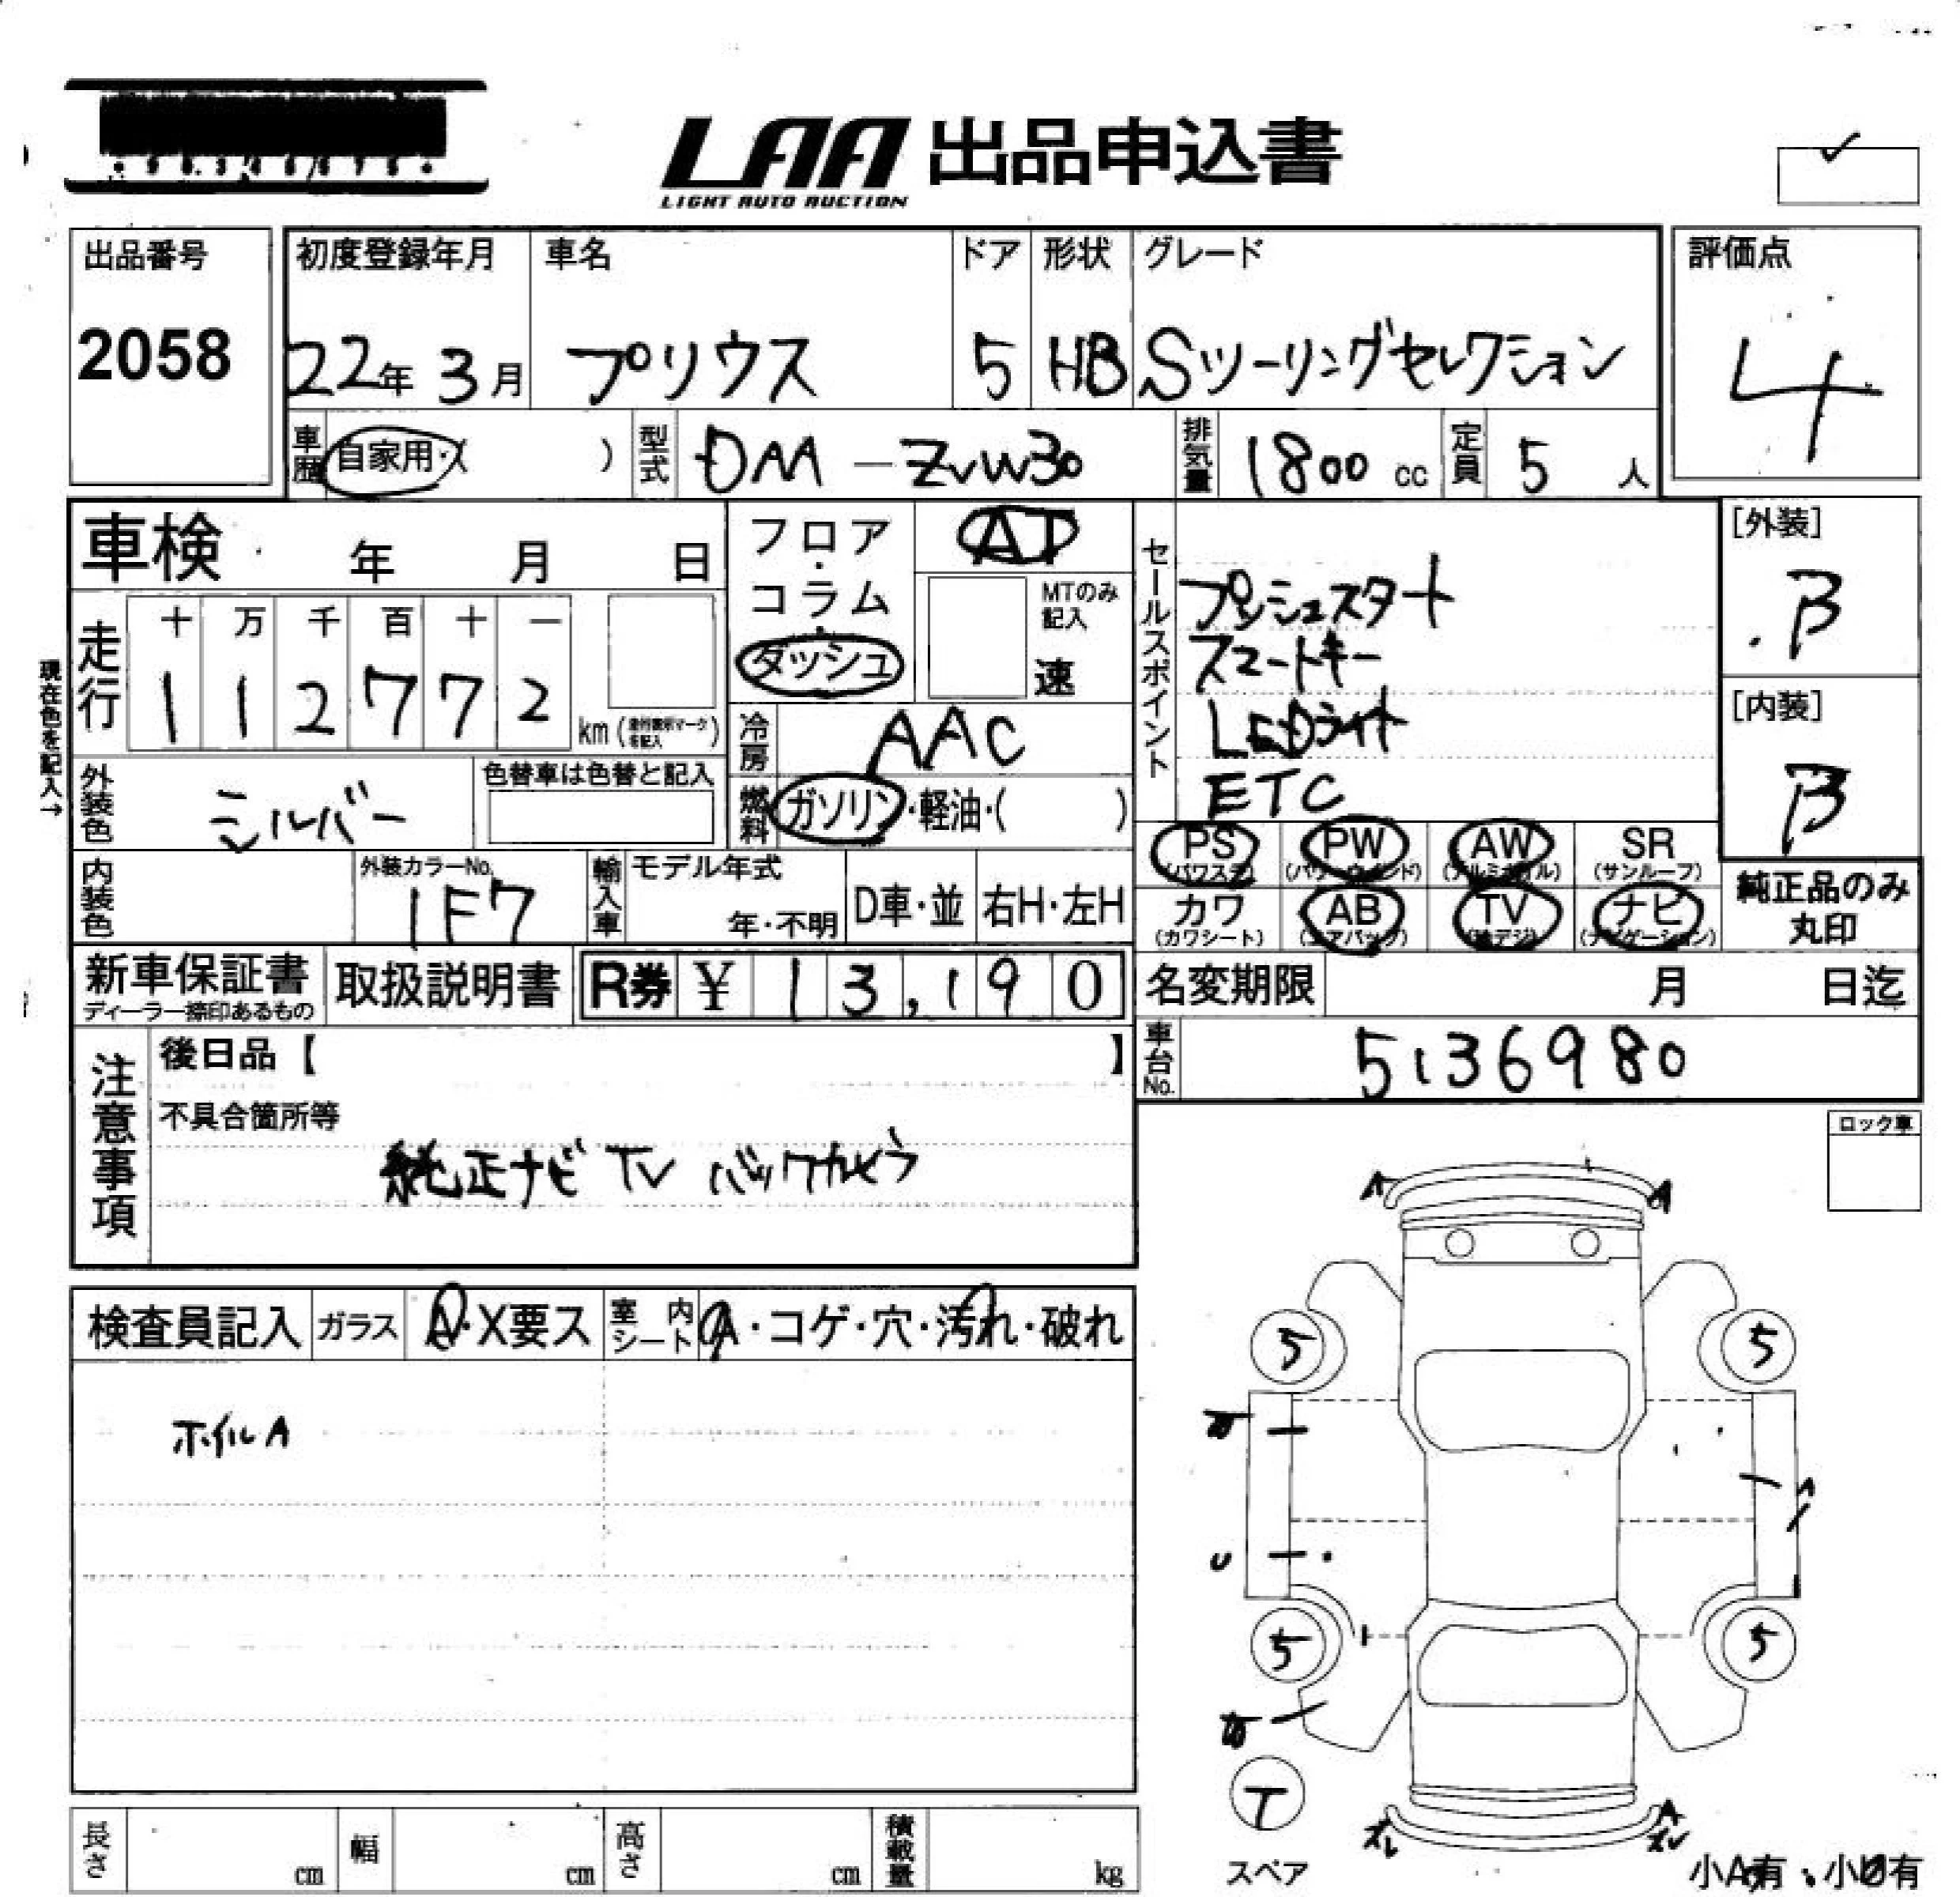 LAA 出品申込書
LIGHT AUTO AUCTION
出品番号
2058
初度登録年月
22年 3月
車名
プリウス
ドア
5
形状
HB
グレード
Sツーリングセレクション
評価点
4
車歴
自家用・( )
型式
DAA - ZVW30
排気量
1800 cc
定員
5 人
車検 年 月 日
フロア・コラム・ダッシュ
AT
MTのみ記入
速
セールスポイント
プッシュスタート
スマートキー
LEDライト
ETC
[外装]
B
[内装]
B
現在色を記入→
走行
十 万 千 百 十 一
1 1 2 7 7 2
km
冷房
AAC
外装色
シルバー
色替車は色替と記入
燃料
ガソリン・軽油・( )
PS
(パワステ)
PW
(パワーウインド)
AW
(アルミホイル)
SR
(サンルーフ)
内装色
外装カラーNo.
1F7
輸入車
モデル年式
年・不明
D車・並
右H・左H
カワ
(カワシート)
AB
(エアバック)
TV
(地デジ)
ナビ
(ナビゲーション)
純正品のみ
丸印
新車保証書
ディーラー捺印あるもの
取扱説明書
R券 ¥ 13,190
名変期限 月 日迄
車台No.
5136980
注意事項
後日品【 】
不具合箇所等
純正ナビ TV バックカメラ
ロック車
検査員記入
ガラス
A・X要ス
室内シート
A・コゲ・穴・汚れ・破れ
ホイルA
A A
5 5
A
U
5 5
T
スペア
A
小A有・小U有
長さ cm
幅 cm
高さ cm
積載量 kg